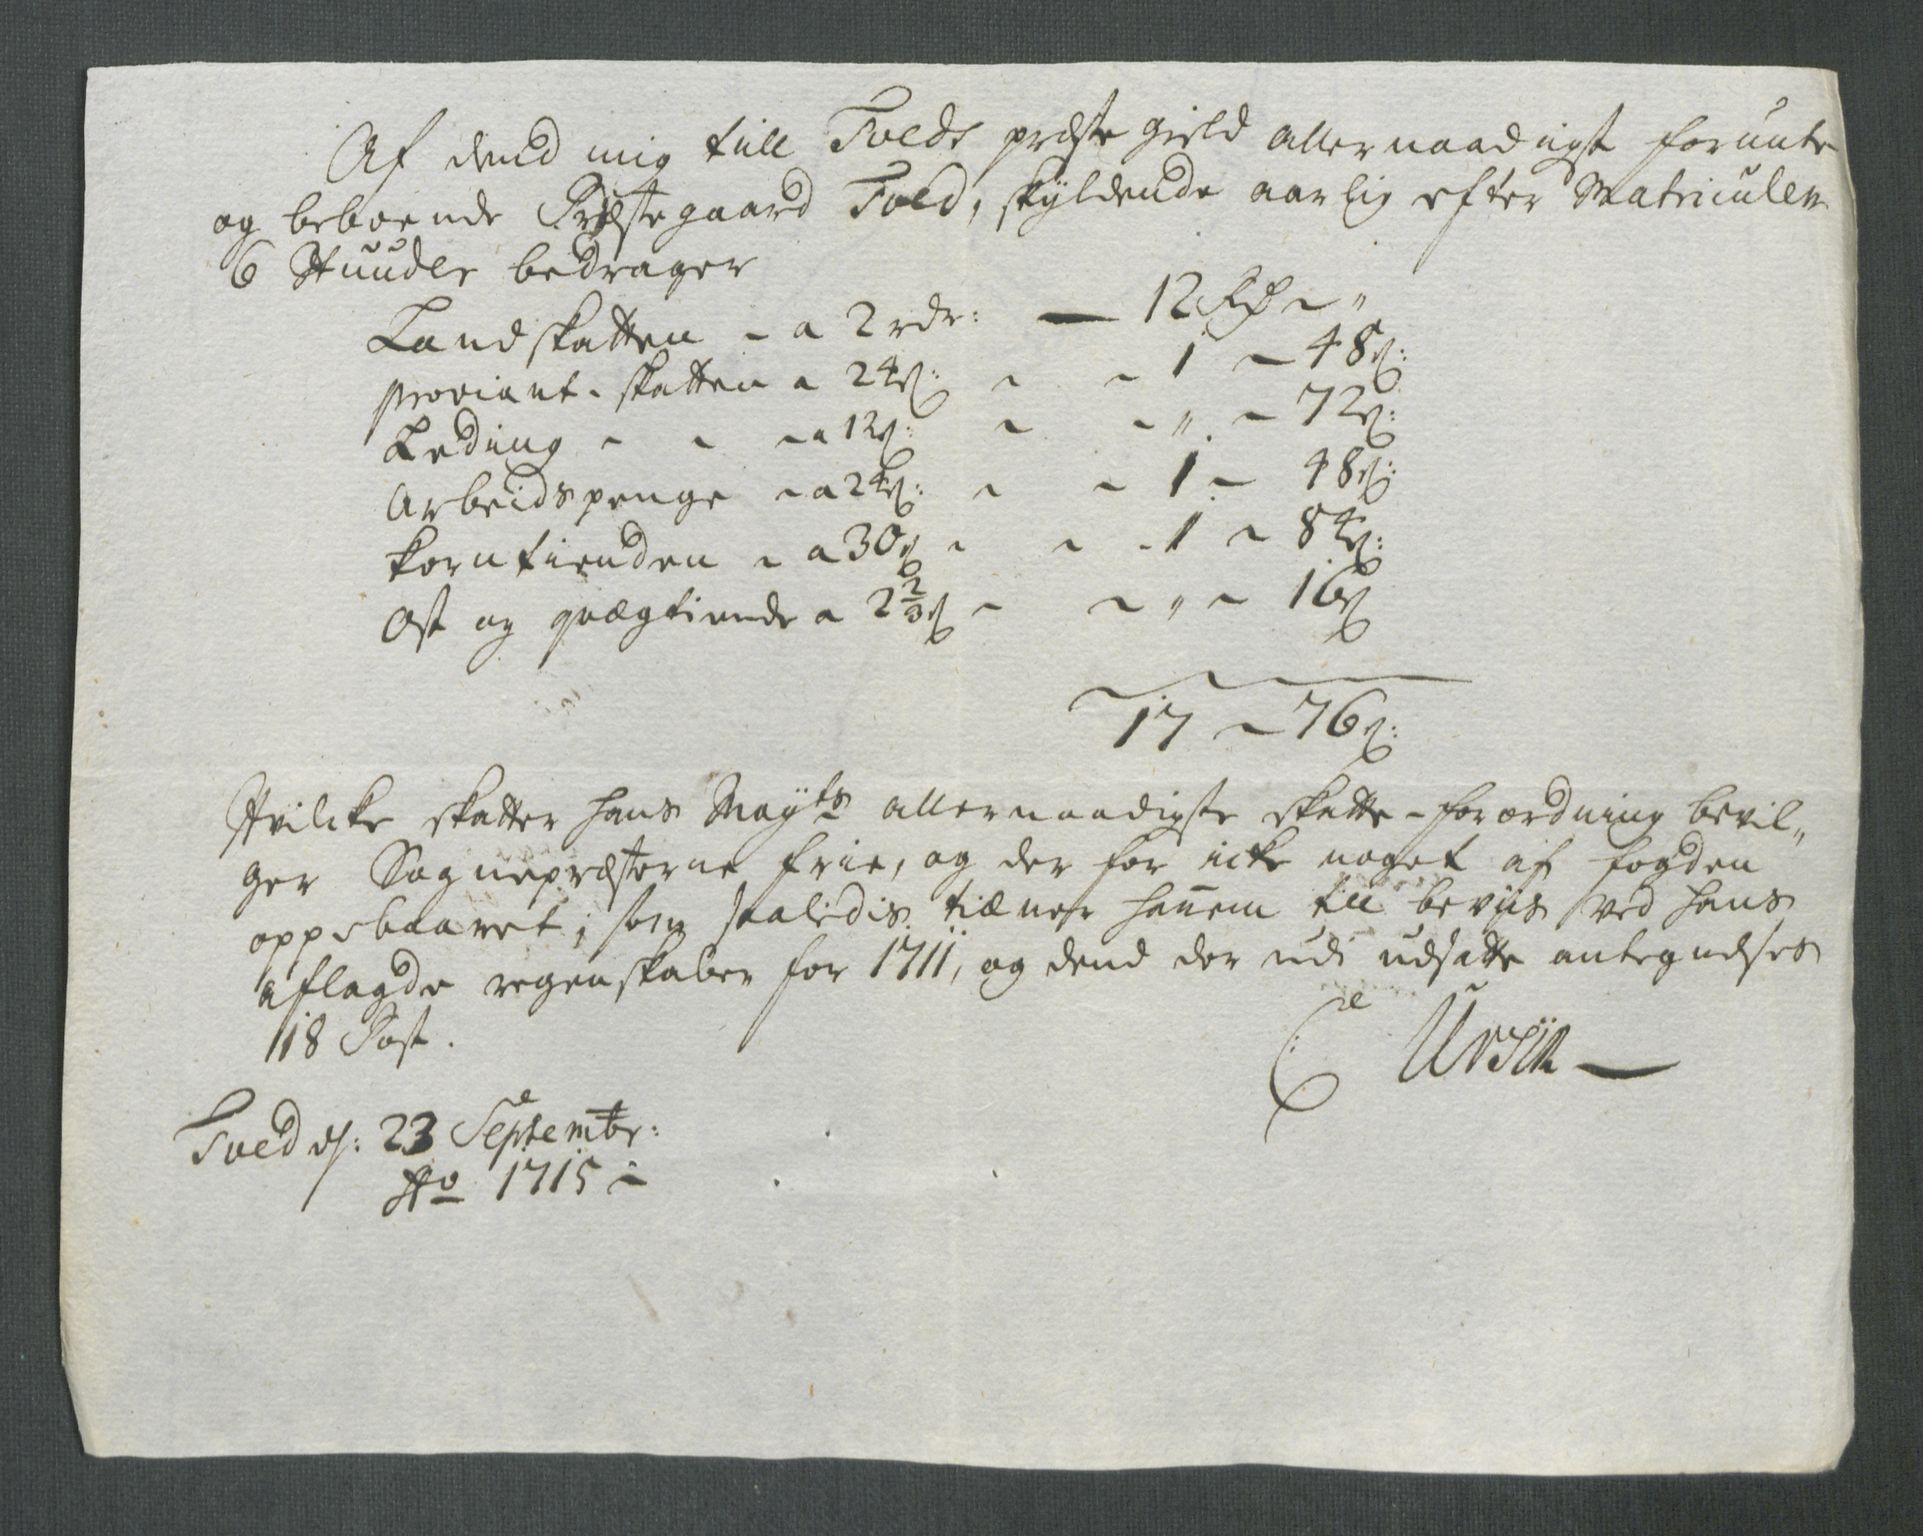 Af dend mig till Tveds præste gield allernaadigst forunte
og beboende Præstegaard Tved, skyldende aarlig efter Matriculen
6 Huuder bedrager
Landskatten - a 2 rdr: — 12 Rd ~ "
Proviant-skatten a 24 ß: ~ ~ 1 ~ 48 ß:
Leding ~ ~ ~ a 12 ß: ~ ~ " ~ 72 ß:
Arbeidspenge ~ a 24 ß: ~ ~ 1 ~ 48 ß:
Korntienden ~ a 30 ß ~ ~ - 1 ~ 84 ß:
Ost og qvægtiende a 2 2/3 ß ~ ~ " ~ 16 ß
17 ~ 76 ß:
Hvilcke skatter hans Mayts allernaadigste skatte-forordning bevil„
ger Sognepræsterne frie, og der for icke noget af fogden
oppebaaret; som saaledis tiæner hannem till beviis ved hans
aflagde regenskaber for 1711, og dend der udi udsatte antegndses
18 Post.
C Ursin —
Tved ds: 23 Septembr:
Ao 1715 ~